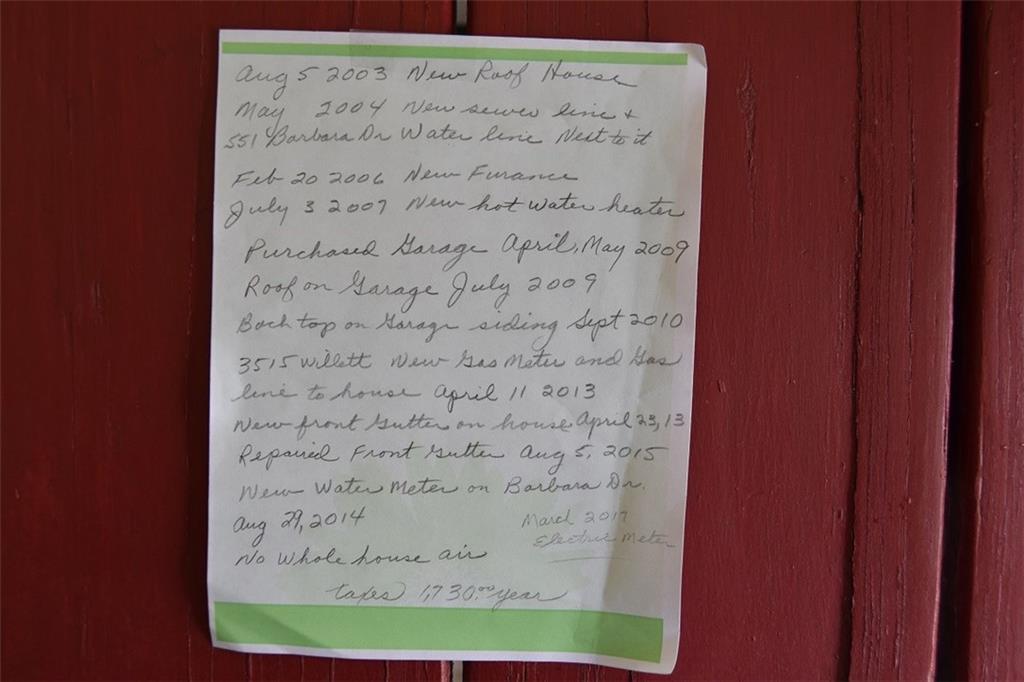 Aug 5 2003 New Roof House
May 2004 New sewer line +
551 Barbara Dr Water line Next to it
Feb 20 2006 New Furance
July 3 2007 New hot water heater
Purchased Garage April, May 2009
Roof on Garage July 2009
Back top on Garage siding Sept 2010
3515 Willett New Gas Meter and Gas
line to house April 11 2013
New front Gutter on house April 23, 13
Repaired Front Gutter Aug 5, 2015
New Water Meter on Barbara Dr.
Aug 29, 2014
March 2017
Electric Meter
No Whole house air
taxes 1,730.00 year